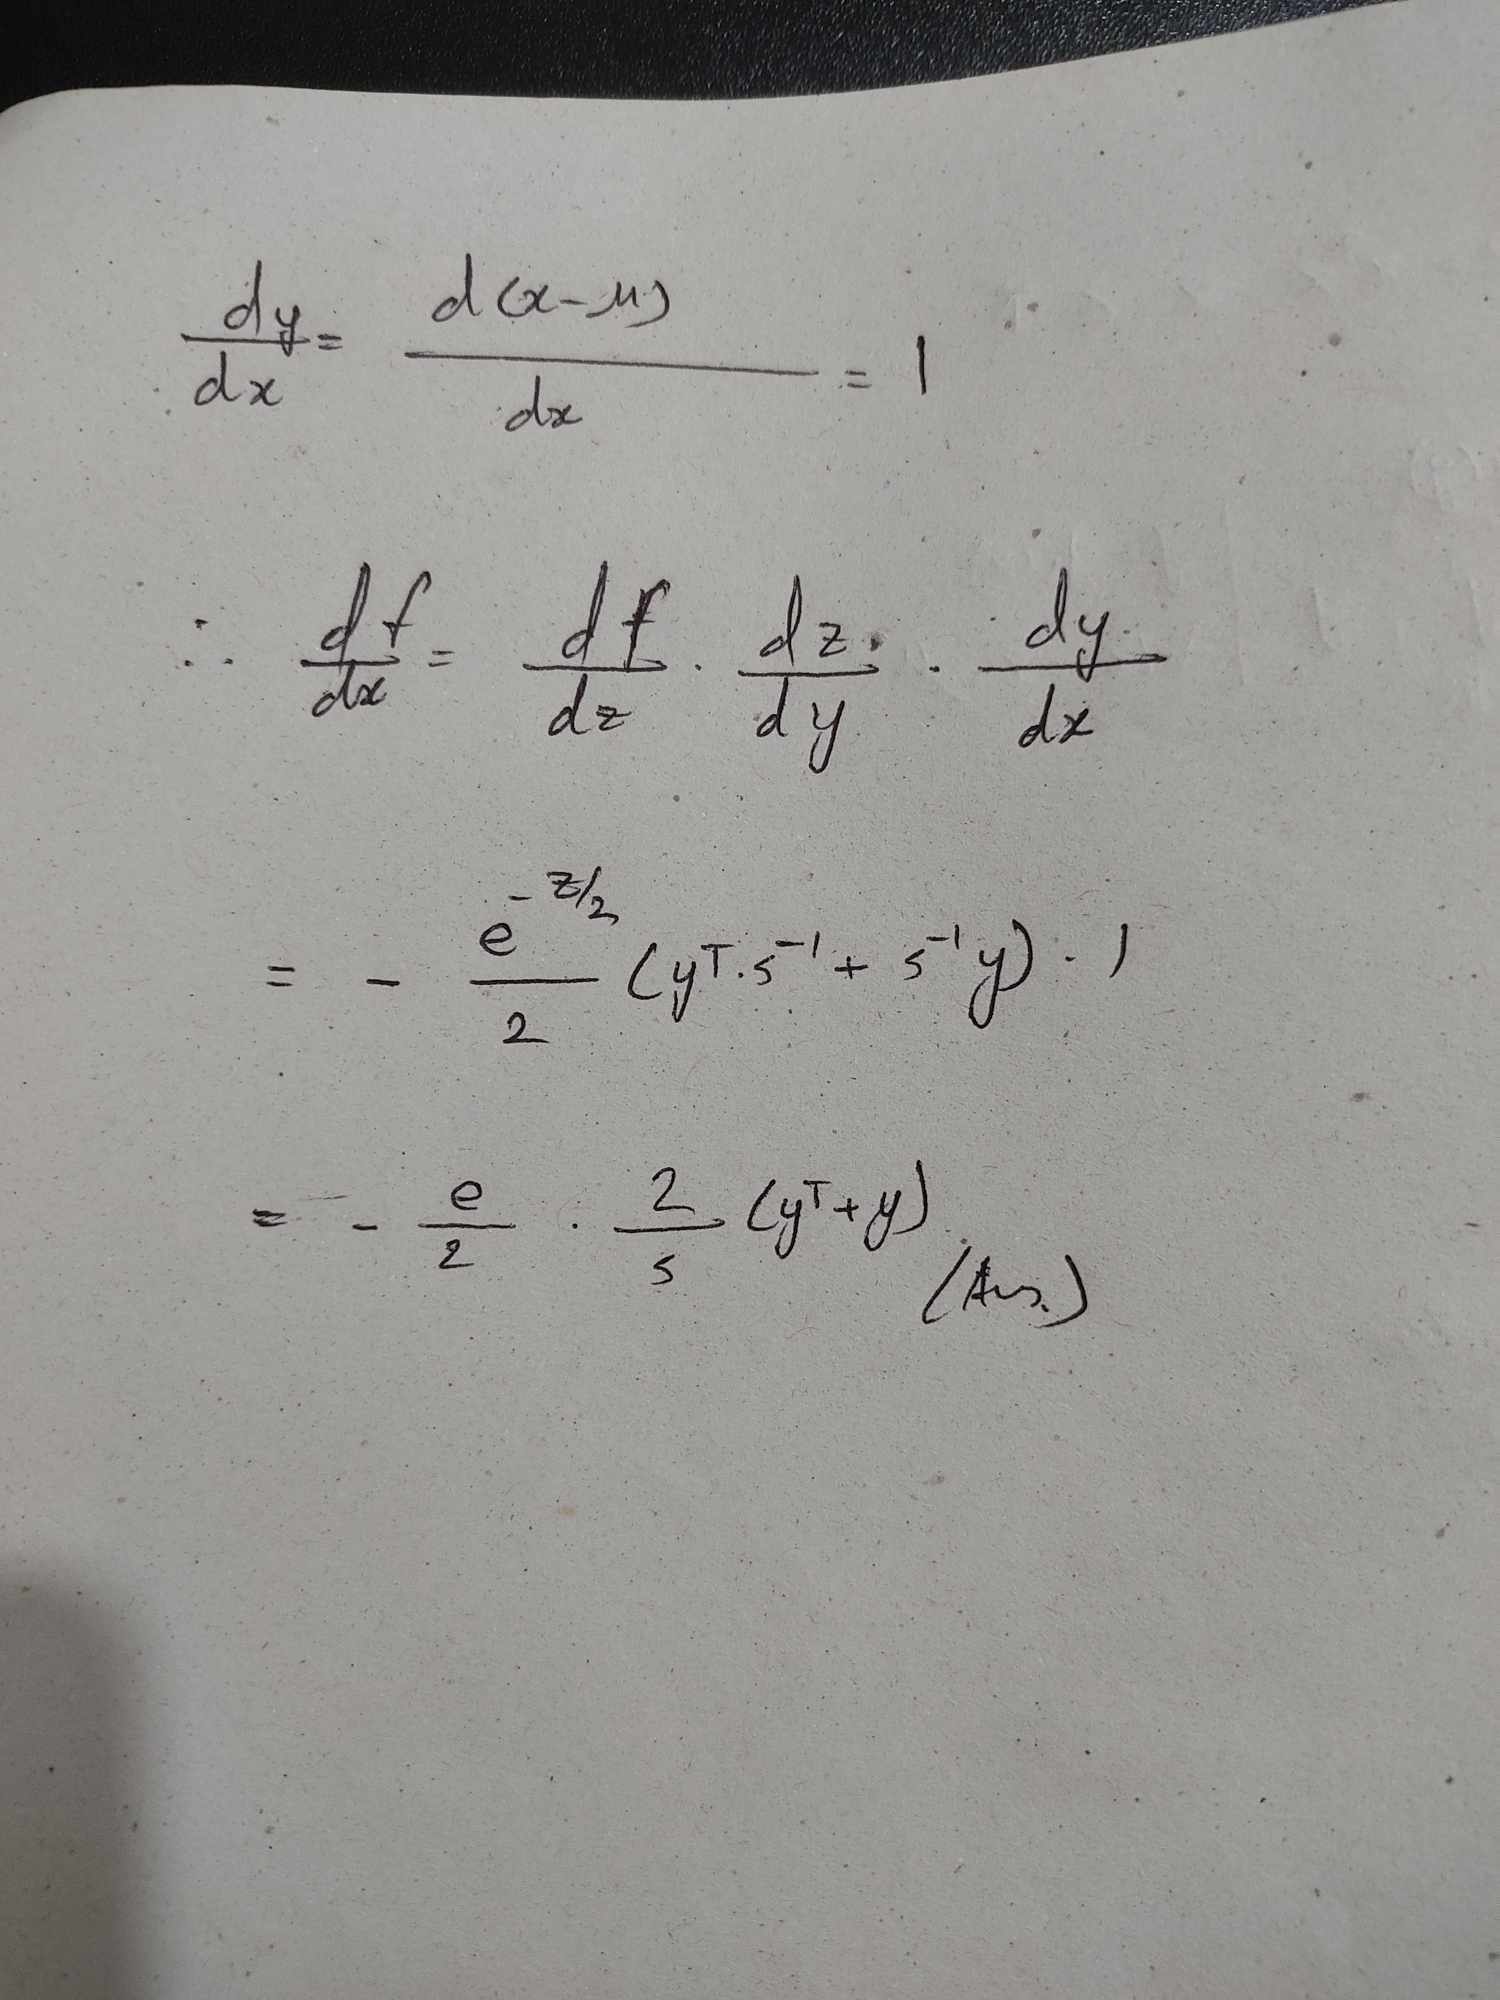 dy/dx = d(x-μ)/dx = 1
∴ df/dx = df/dz · dz/dy · dy/dx
= - e^{-z/2}/2 (y^T · s^{-1} + s^{-1} y) · 1
= - e/2 · 2/s (y^T + y)
(Ans.)